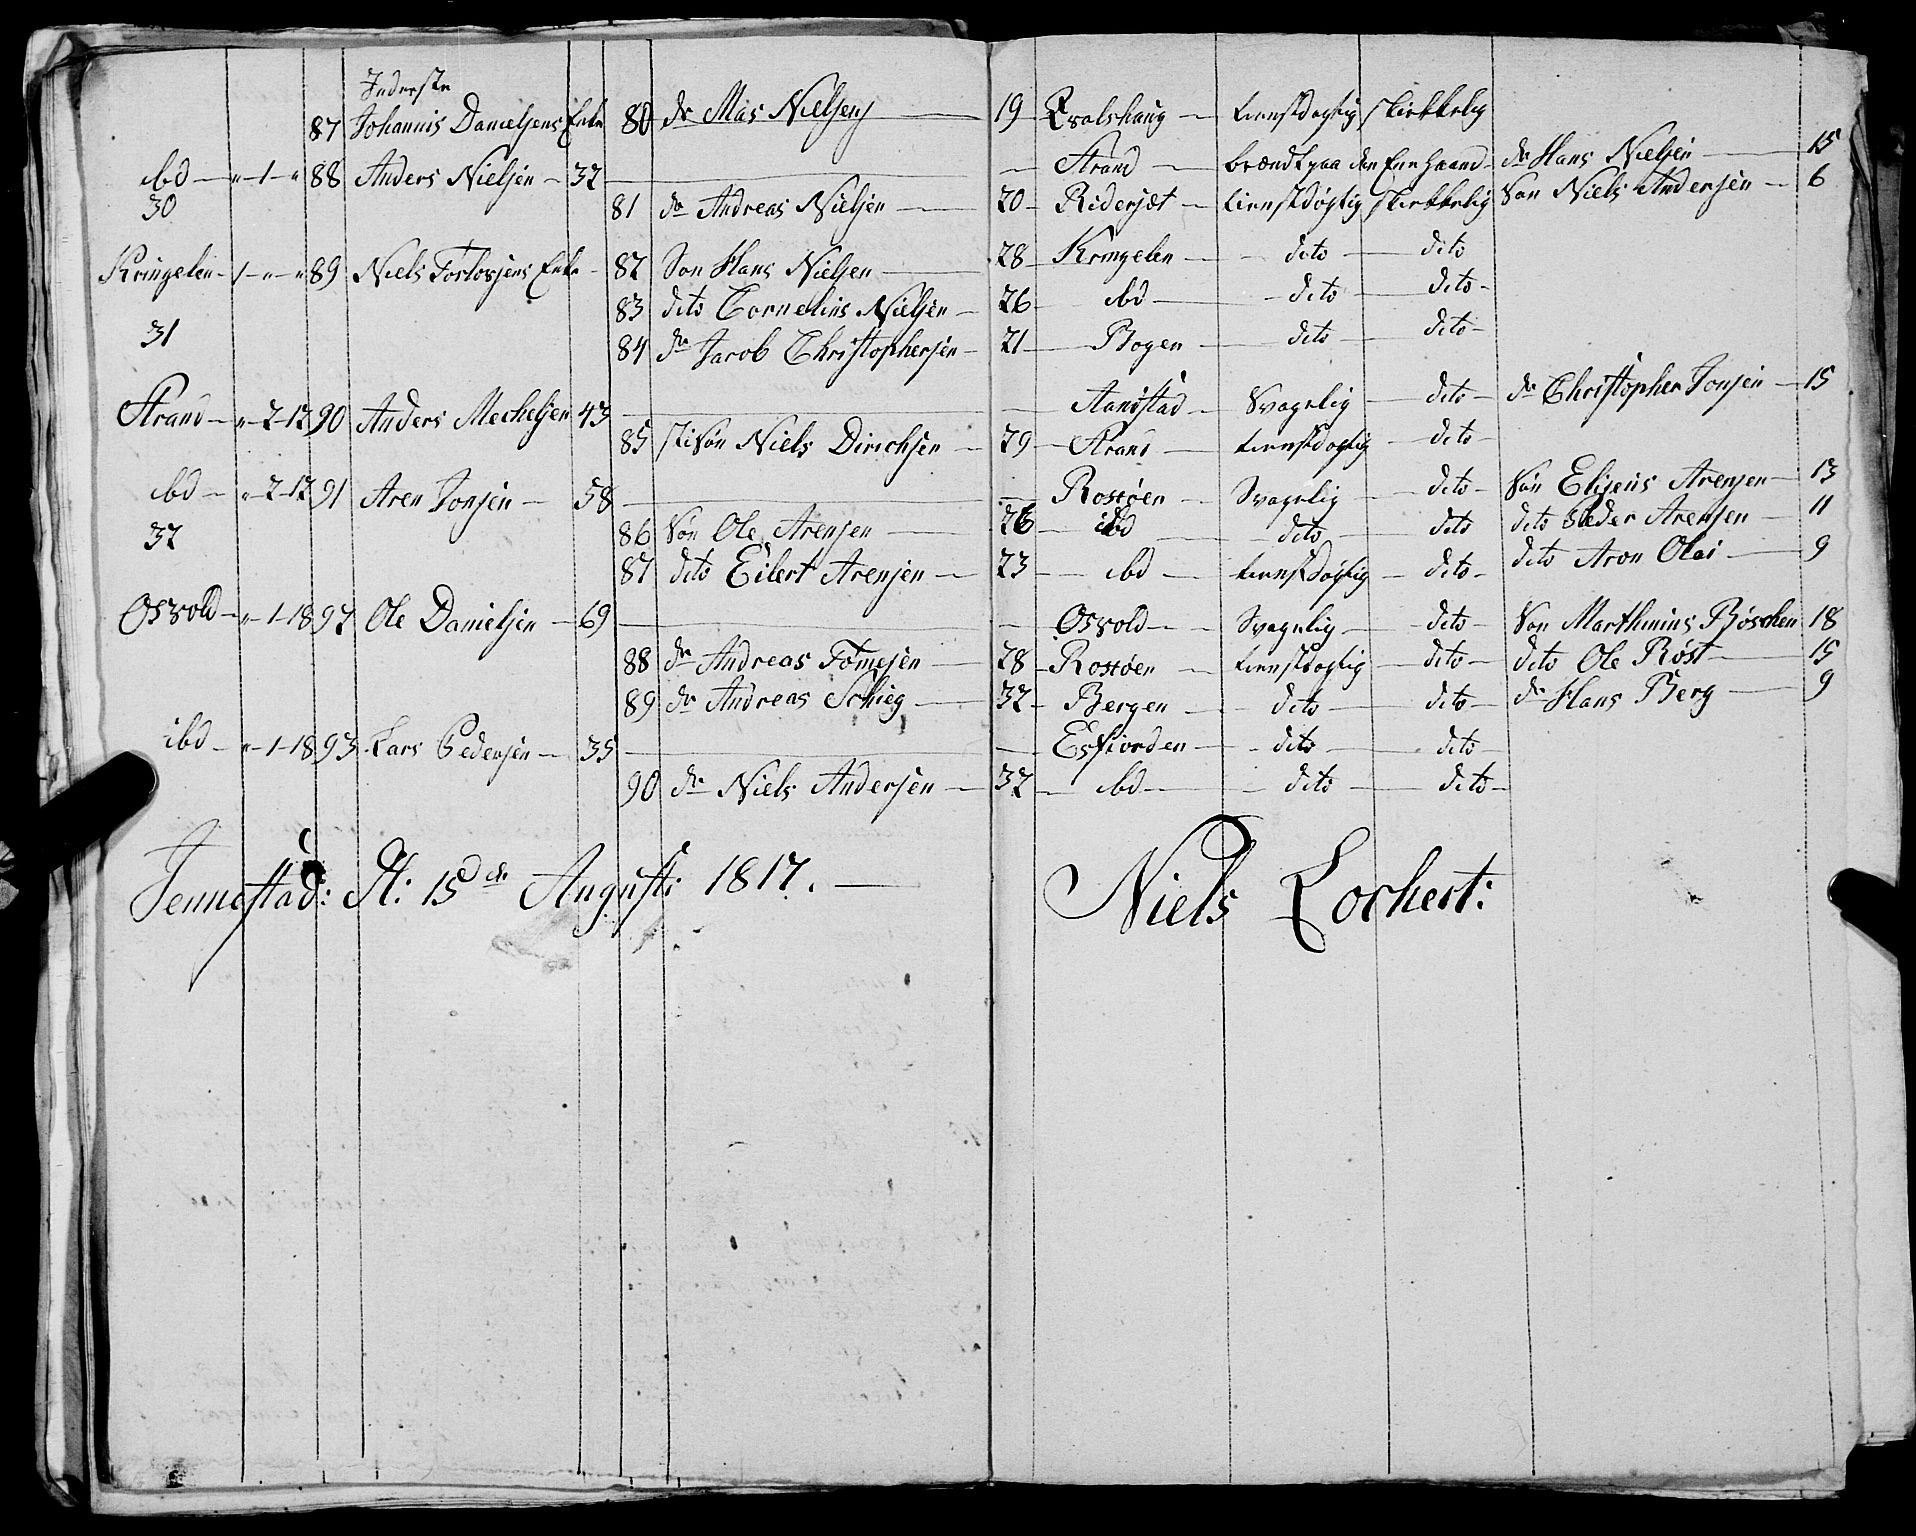 Inderste
87 Johannis Danielsens Enke 80 dr Mas Nielsen — 19 Qvalshaug — tienstdøgtig skikkelig
ibd — " — 1 — " 88 Anders Nielsen — 32 — Strand — brændt paa den Ene Haand — dr Hans Nielsen — 15
30 81 dr Andreas Nielsen — 20 — Ridersæt — tienstdøgtig skikkelig Søn Niels Andersen — 6
Kringelen — 1 — " — " 89 Niels Torlovsens Enke — 82 Søn Hans Nielsen — 28 — Kringelen — dito — dito
83 dito Cornelius Nielsen — 26 — ibd — dito — dito
31 84 dr Jacob Christophersen — 21 — Bogen — dito — dito
Strand — " — 2 — 12 90 Anders Mechelsen 43 — Aanstad — Svagelig — dito — dr Christopher Jonsen — 15
85 Stisøn Niels Dirichsen — 29 — Strand — tienstdøgtig — dito
ibd — " — 2 — 12 91 Aren Jonsen — 58 — Rostøen — Svagelig — dito — Søn Eliseus Arensen — 13
32 86 Søn Ole Arensen — 26 — ibd — dito — dito dito Peder Arensen — 11
87 dito Eilert Arensen — 23 — ibd — tienstdøgtig — dito — dito Aron Olai — 9
Osvold — " — 1 — 18 92 Ole Danielsen — 69 — Osvold — Svagelig — dito — Søn Marthinus Bøschen 18
88 dr Andreas Tømesen — 28 — Rostøen — tienstdøgtig — dito — dito Ole Røst — 15
89 dr Andreas Schieg — 32 — Bergen — dito — dito — dr Hans Berg — 9
ibd — " — 1 — 18 93 Lars Pedersen — 35 — Esfiorden — dito — dito
90 dr Niels Andersen — 32 — ibd — dito — dito
Jennestad: d: 15de Augusti 1817. — Niels Lockert: